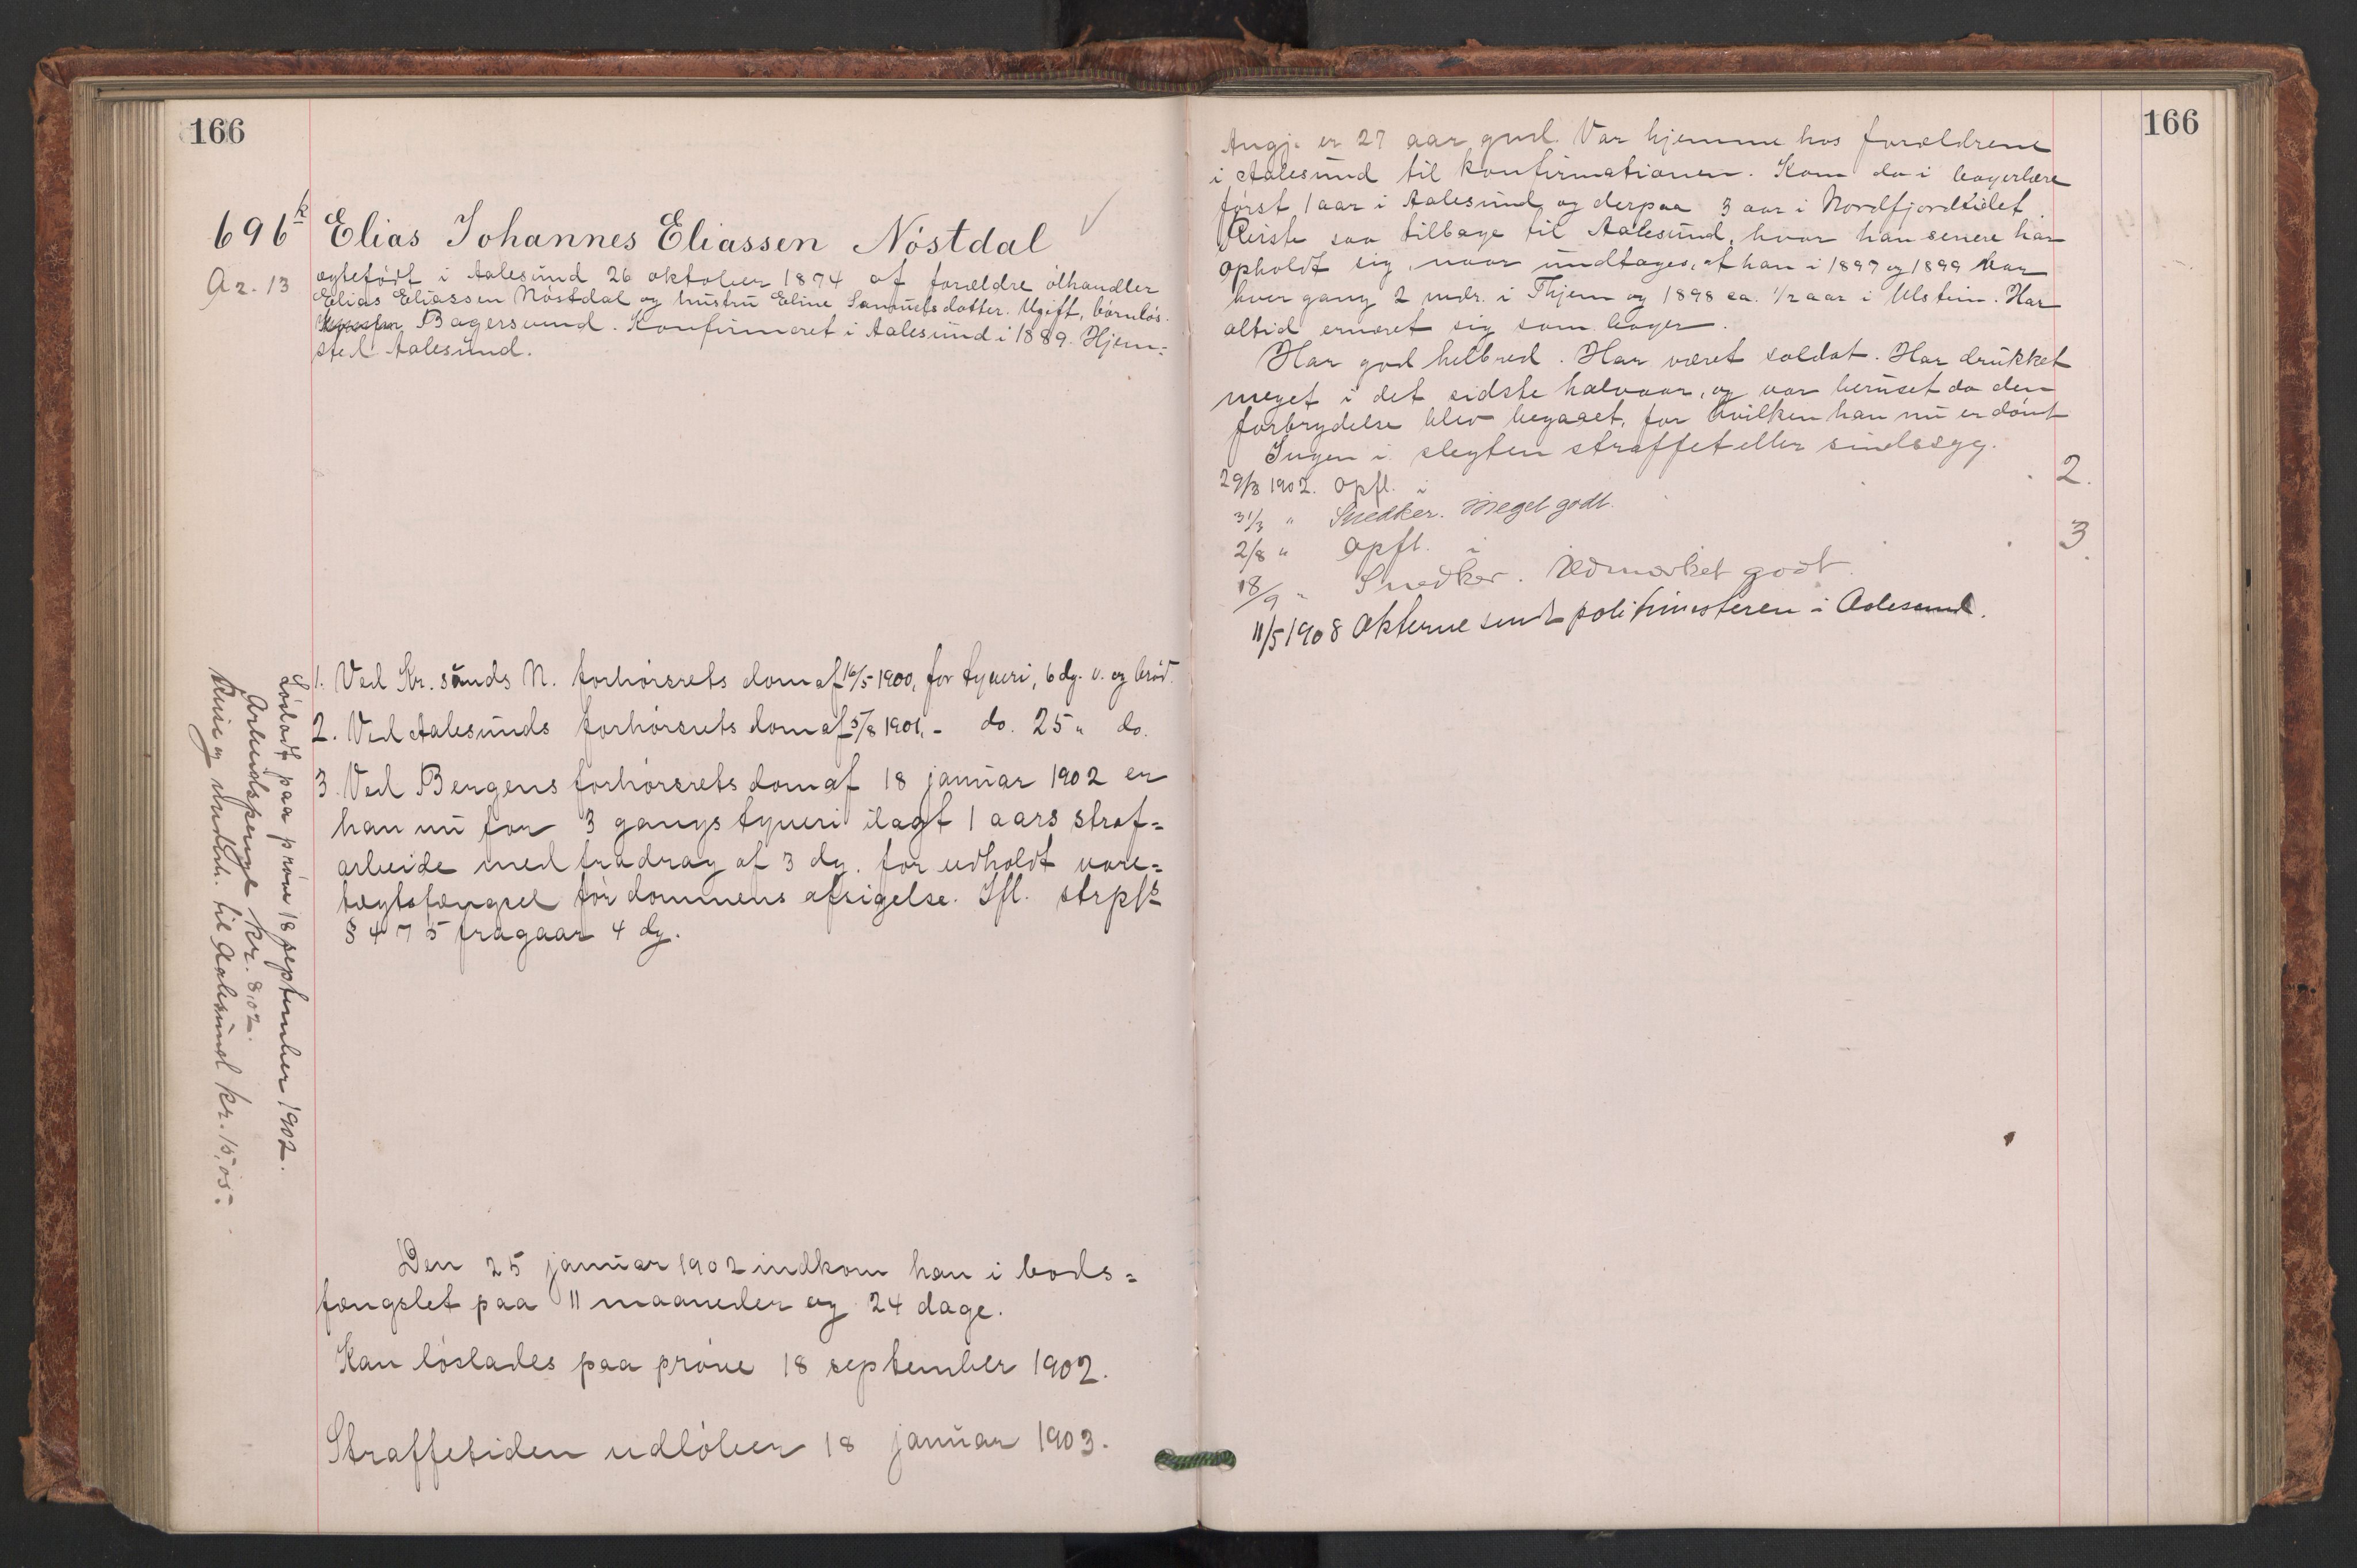 166
696k Elias Johannes Eliassen Nóstdal ✓
A 2. 13
ægtefódt i Aalesund 26 oktober 1874 af forældre ólhandler
Elias Eliassen Nóstdal og hustru Eline Samuelsdatter. Ugift, bórnlós.
Bagersvend. Konfirmeret i Aalesund i 1889. Hjem=
sted Aalesund.
1. Ved Kr.sunds N. forhórsrets dom af 16/5 1900, for tyveri, 6 dg. v. og bród.
2. Ved Aalesunds forhórsrets dom af 5/8 1901, - do. 25 " do.
3. Ved Bergens forhórsrets dom af 18 januar 1902 er
han nu for 3 gangs tyveri ilagt 1 aars straf=
arbeide med fradrag af 3 dg. for udholdt vare=
tægtsfængsel fór dommens afsigelse. Ifl. strpls
§ 475 fragaar 4 dg.
Lósladt paa próve 18 september 1902.
Arbeidspenge kr. 8,02.
Reise og underh. til Aalesund kr. 15,05.
Den 25 januar 1902 indkom han i bods=
fængslet paa 11 maaneder og 24 dage.
Kan lóslades paa próve 18 september 1902.
Straffetiden udlóber 18 januar 1903.
166
Angj. er 27 aar gml. Var hjemme hos forældrene
i Aalesund til konfirmationen. Kom da i bagerlære
fórst 1 aar i Aalesund og derpaa 3 aar i Nordfjordeidet.
Reiste saa tilbage til Aalesund, hvor han senere har
opholdt sig, naar undtages, at han i 1897 og 1899 har
hver gang 2 mdr. i Thjem og 1898 ca. 1/2 aar i Ulstein. Har
altid ernæret sig som bager.
Har god helbred. Har været soldat. Har drukket
meget i det sidste halvaar, og var beruset da den
forbrydelse blev begaaet, for hvilken han nu er dómt
Ingen i slegten straffet eller sindssyg.
29/3 1902. Opfl. i 2.
31/3 " Snedker. Meget godt.
2/8 " Opfl. i 3.
18/9 " Snedker. Udmerket godt.
11/5 1908 Akterne sendt politimesteren i Aalesund.